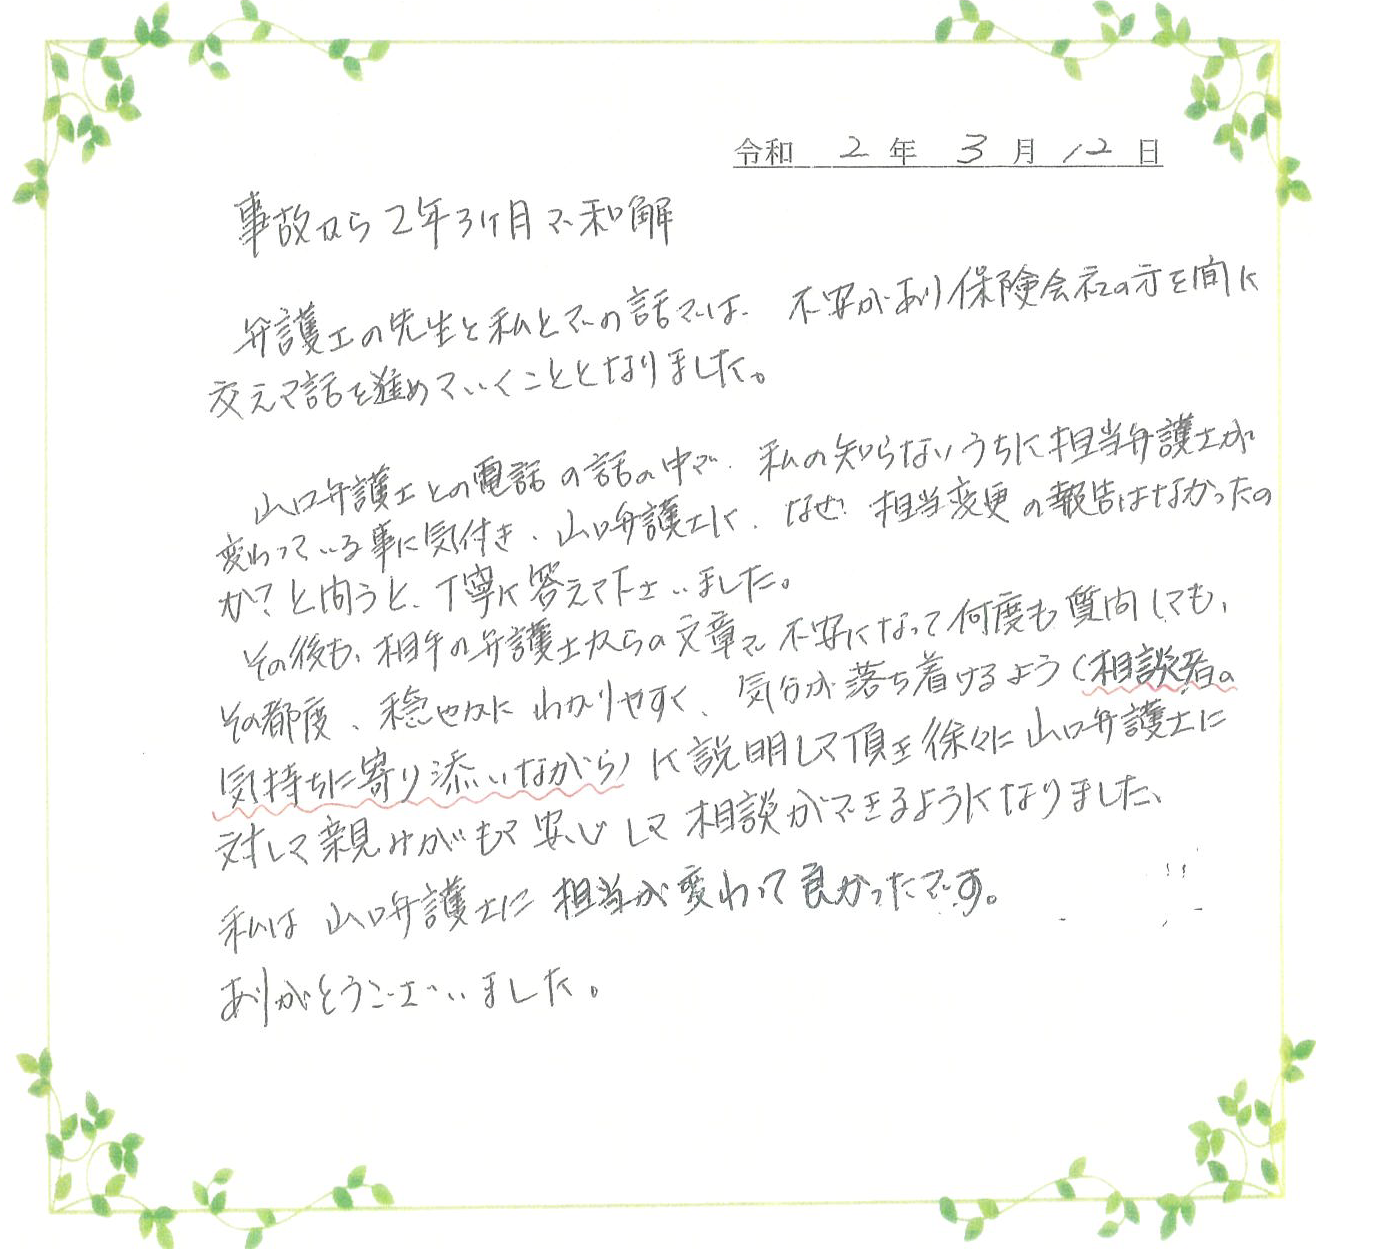 令和 2 年 3 月 12 日
事故から2年3ヶ月で和解
弁護士の先生と私とでの話では、不安があり保険会社の方を間に
交えて話を進めていくこととなりました。
山口弁護士との電話の話の中で、私の知らないうちに担当弁護士が
変わっている事に気付き、山口弁護士に、なぜ担当変更の報告はなかったの
か?と問うと、丁寧に答えて下さいました。
その後も、相手の弁護士からの文章で不安になって何度も質問しても、
その都度、穏やかにわかりやすく、気分が落ち着けるよう(相談者の
気持ちに寄り添いながら)に説明して頂き徐々に山口弁護士に
対して親みがもて安心して相談ができるようになりました、
私は山口弁護士に担当が変わって良かったです。
ありがとうございました。